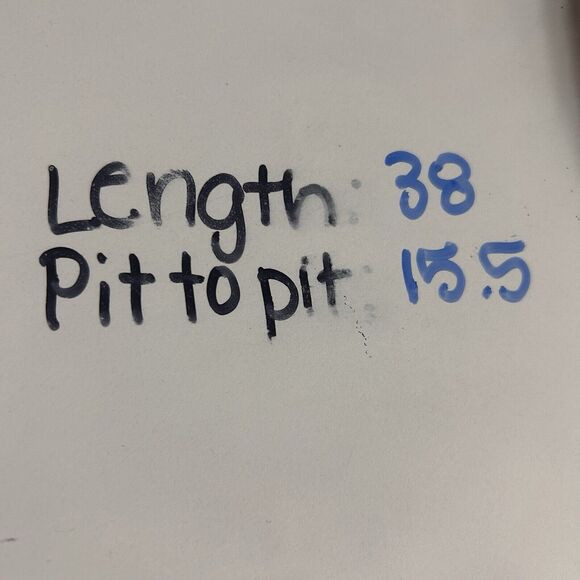 Length: 38
Pit to pit: 15.5